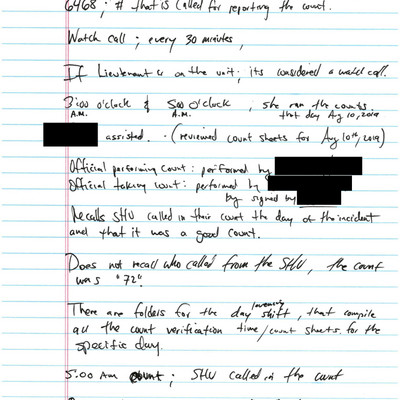 6468; # that is called for reporting the count.
Watch call; every 30 minutes,
If Lieutenant is on the unit; its considered a watch call.
3:00 o'clock & 5:00 o'clock, she ran the counts
A.M. A.M. that day Aug 10, 2019
assisted. - (reviewed count sheets for Aug 10th, 2019)
Official performing count: performed by
Official taking count: performed by
by signed by
Recalls SHU called in their count the day of the incident
and that it was a good count.
Does not recall who called from the SHU, the count
was "72".
There are folders for the day/evening shift, that compile
all the count verification time/count sheets for the
specific day.
5:00 AM count; SHU called in the count